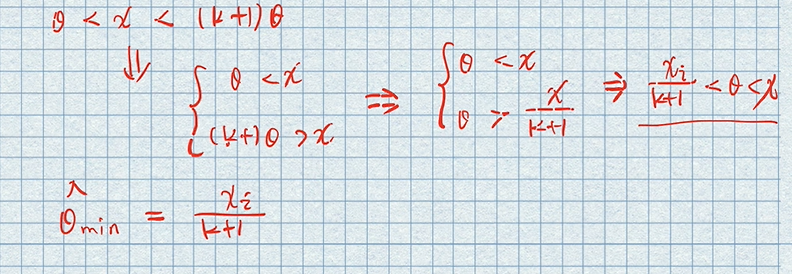 θ < x < (k+1)θ
⇓ { θ < x, (k+1)θ > x ⇒ { θ < x, θ > x/(k+1) ⇒ x_i/(k+1) < θ < x
θ̂_min = x_i/(k+1)